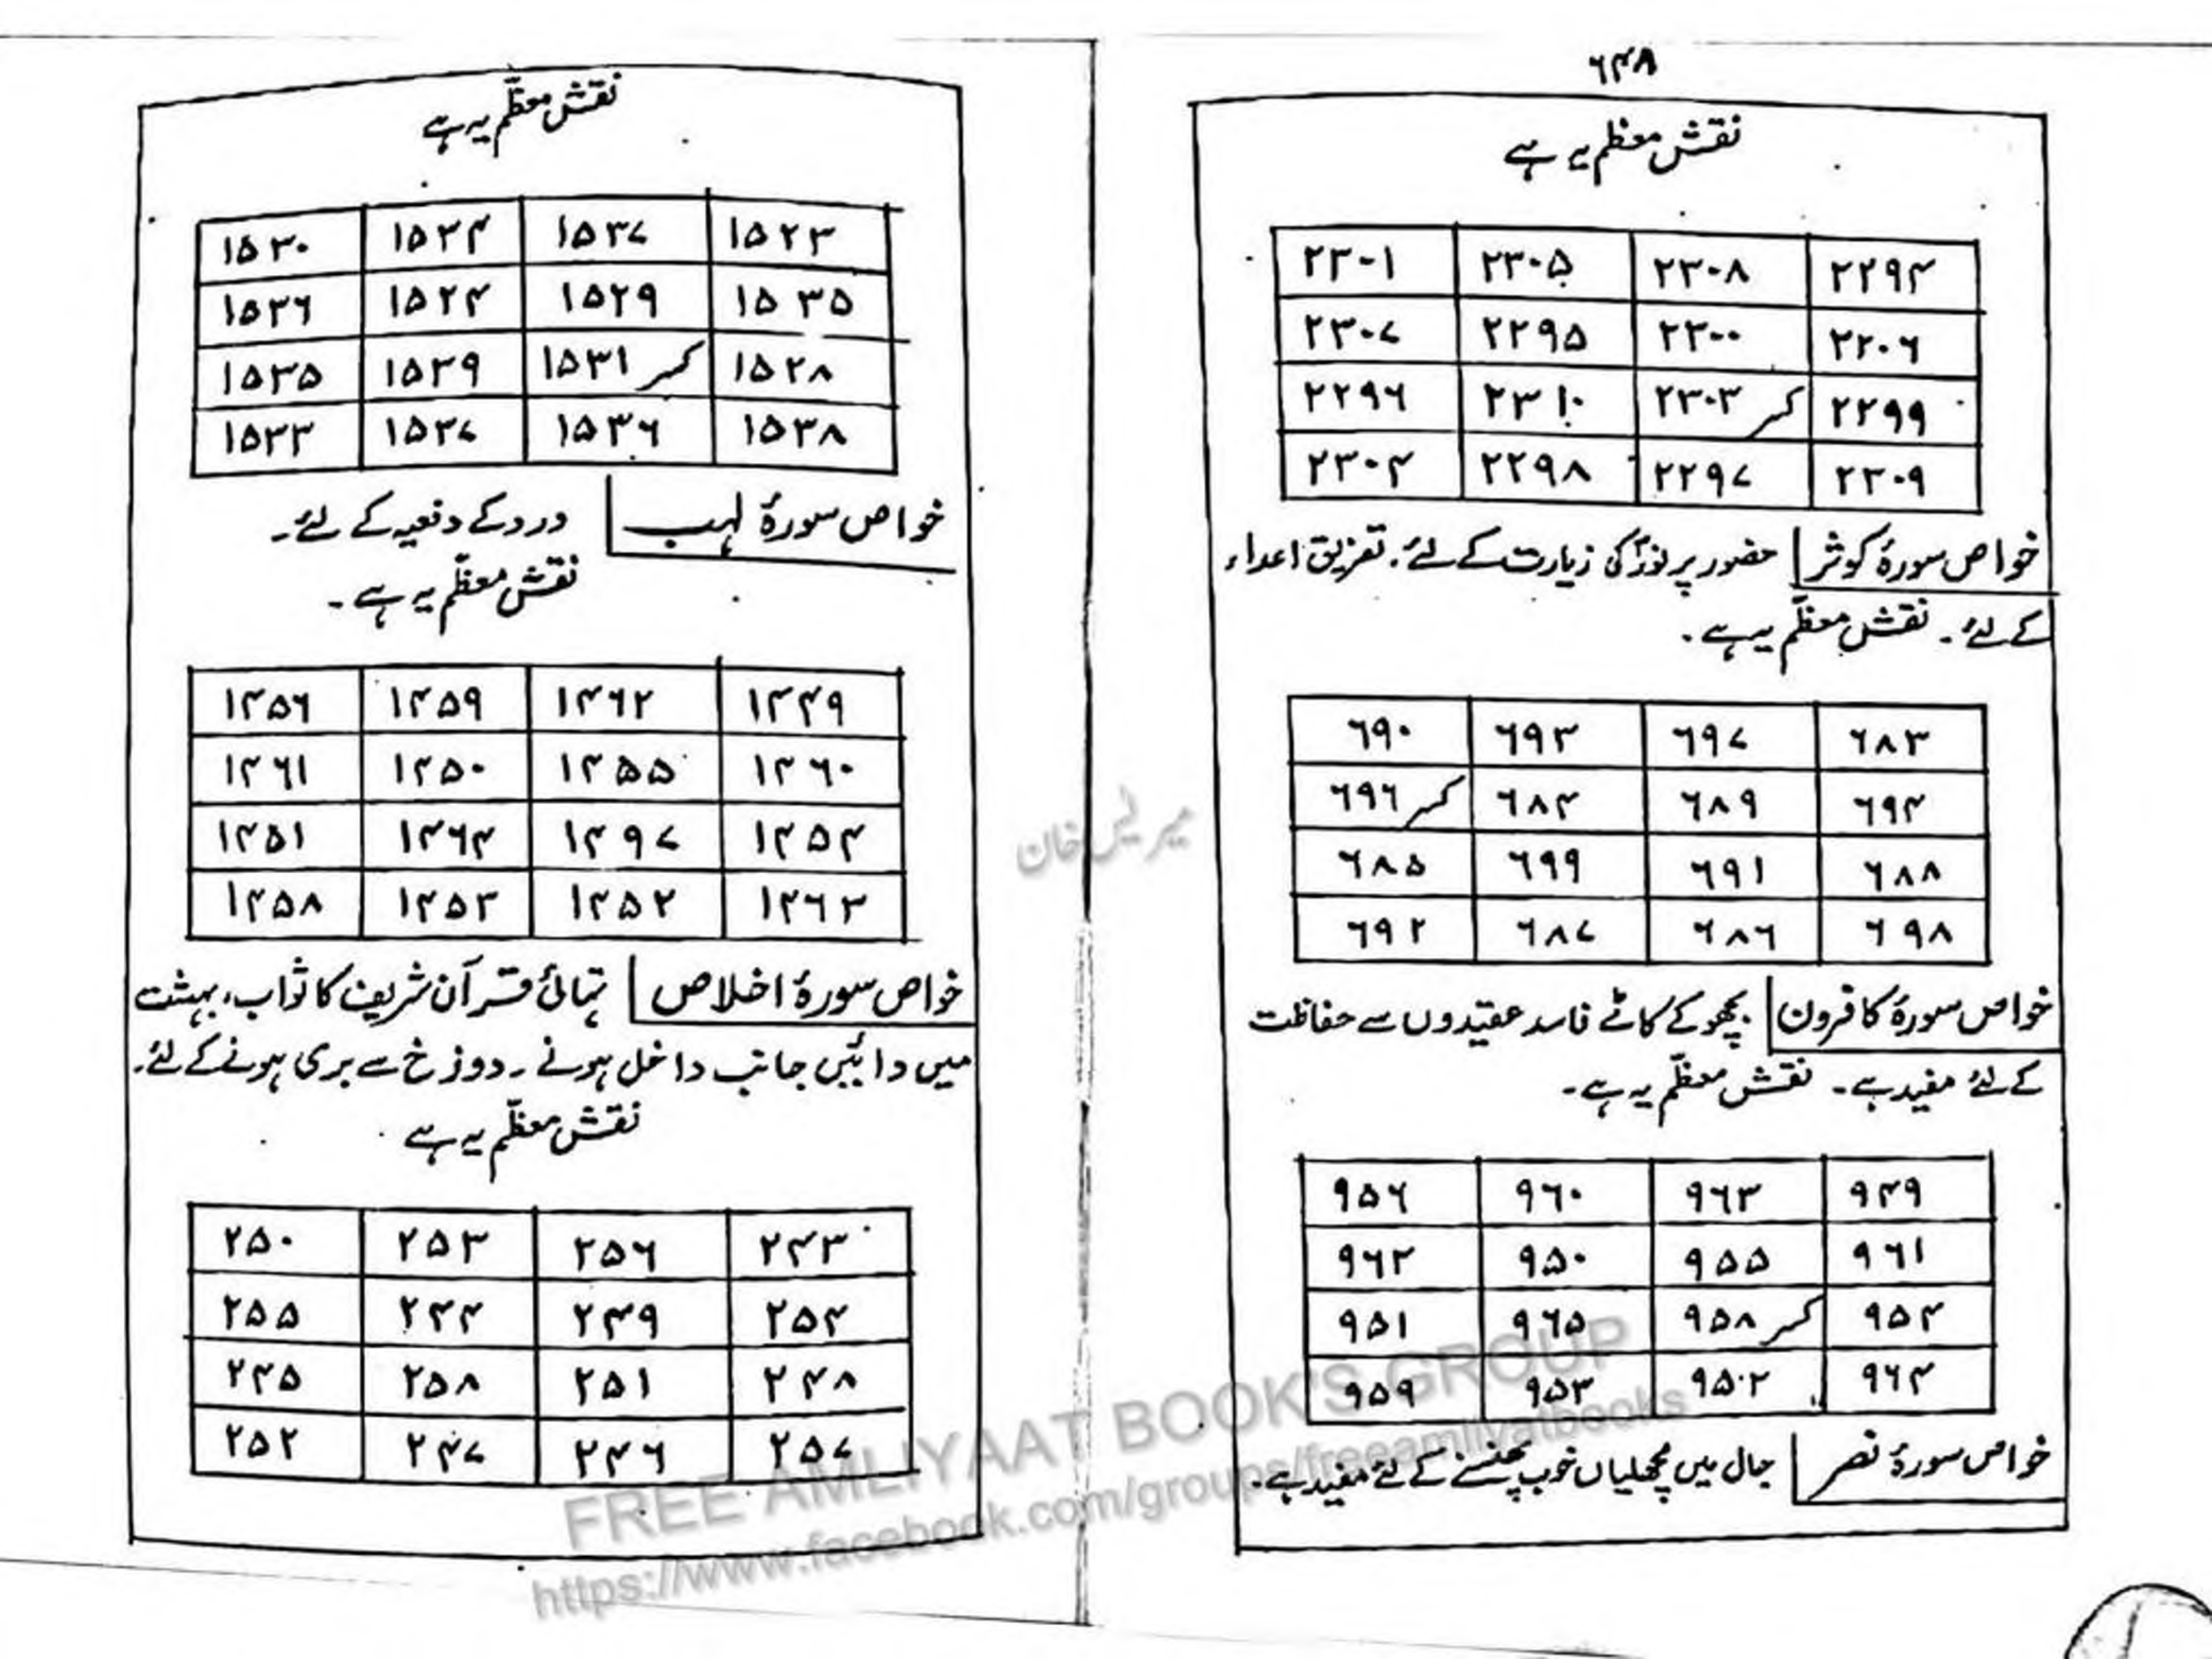 ۶۴۸
نقش معظم یہ ہے
۲۳۰۱ ۲۳۰۵ ۲۳۰۸ ۲۲۹۴
۲۳۰۷ ۲۲۹۵ ۲۳۰۰ ۲۲۰۶
۲۲۹۶ ۲۳۱۰ ۲۳۰۳ کسر ۲۲۹۹
۲۳۰۴ ۲۲۹۸ ۲۲۹۷ ۲۳۰۹
خواص سورۂ کوثر حضور پر نورؐ کی زیارت کے لئے، تفریق اعداء
کے لئے۔ نقش معظم یہ ہے۔
۶۹۰ ۶۹۳ ۶۹۷ ۶۸۳
۶۹۶ کسر ۶۸۴ ۶۸۹ ۶۹۴
۶۸۵ ۶۹۹ ۶۹۱ ۶۸۸
۶۹۲ ۶۸۷ ۶۸۶ ۶۹۸
خواص سورۂ کافرون بچھو کے کاٹے فاسد عقیدوں سے حفاظت
کے لئے مفید ہے۔ نقش معظم یہ ہے۔
۹۵۶ ۹۶۰ ۹۶۳ ۹۴۹
۹۶۲ ۹۵۰ ۹۵۵ ۹۶۱
۹۵۱ ۹۶۵ ۹۵۸ کسر ۹۵۴
۹۵۹ ۹۵۳ ۹۵۲ ۹۶۴
خواص سورۂ نصر جال میں مچھلیاں خوب پھنسنے کے لئے مفید ہے۔
نقش معظم یہ ہے
۱۵۳۰ ۱۵۳۴ ۱۵۳۷ ۱۵۲۳
۱۵۳۶ ۱۵۲۴ ۱۵۲۹ ۱۵۳۵
۱۵۳۵ ۱۵۳۹ ۱۵۳۱ کسر ۱۵۲۸
۱۵۳۳ ۱۵۳۷ ۱۵۳۶ ۱۵۳۸
خواص سورۂ لہب درد کے دفعیہ کے لئے۔
نقش معظم یہ ہے۔
۱۴۵۶ ۱۴۵۹ ۱۴۶۲ ۱۴۴۹
۱۴۶۱ ۱۴۵۰ ۱۴۵۵ ۱۴۶۰
۱۴۵۱ ۱۴۶۴ ۱۴۹۷ ۱۴۵۴
۱۴۵۸ ۱۴۵۳ ۱۴۵۲ ۱۴۶۳
خواص سورۂ اخلاص تہائی قرآن شریف کا ثواب، بہشت
میں دائیں جانب داخل ہونے۔ دوزخ سے بری ہونے کے لئے۔
نقش معظم یہ ہے
۲۵۰ ۲۵۳ ۲۵۶ ۲۴۳
۲۵۵ ۲۴۴ ۲۴۹ ۲۵۴
۲۴۵ ۲۵۸ ۲۵۱ ۲۴۸
۲۵۲ ۲۴۷ ۲۴۶ ۲۵۷
FREE AMLIYAAT BOOK'S GROUP
https://www.facebook.com/groups/freeamliyatbooks